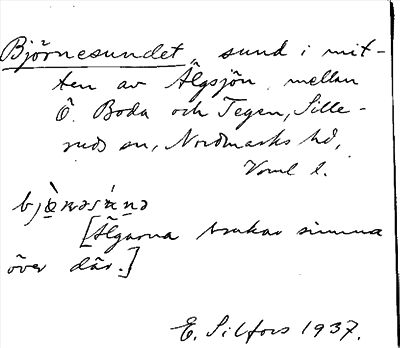 Björnesundet, sund i mit-
ten av Älgsjön, mellan
Ö. Boda och Tegen, Sille-
ruds sn, Nordmarks hd,
Vrml l.
[Älgarna brukar simma
över där.]
E. Silfors 1937.